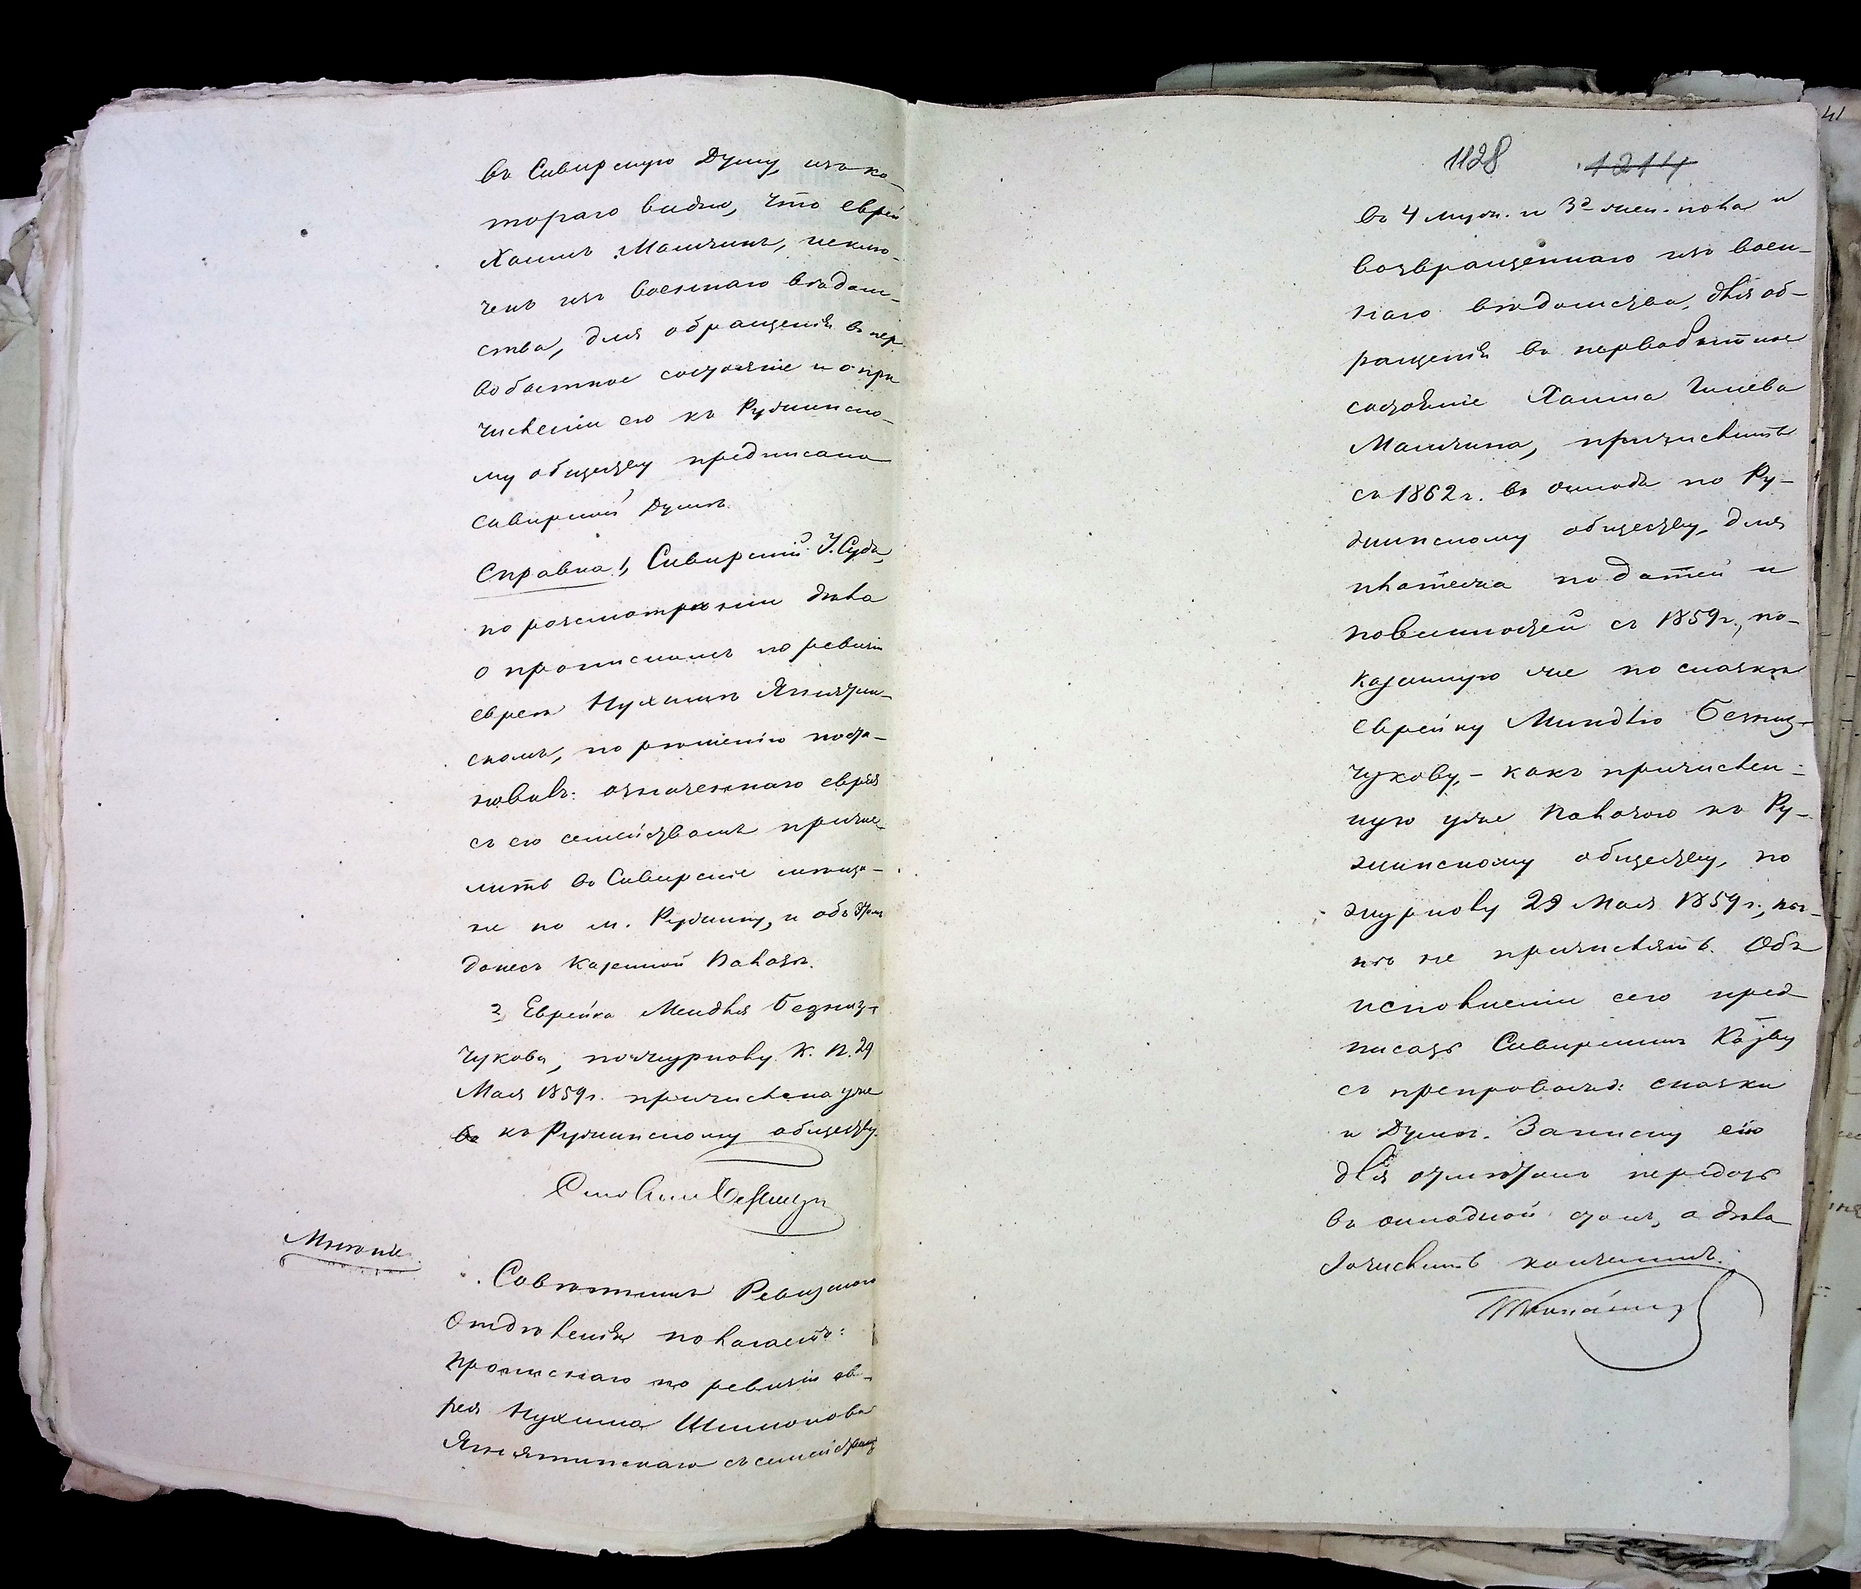 въ Сквирскую Думу, изъ ко-
тораго видно, что еврей
Хаимъ Маличинъ, исклю-
ченъ изъ военнаго вѣдом-
ства, для обращенія въ пер-
вобытное состояніе и о при
численіи его къ Ружинско-
му обществу предписано
Сквирской Думѣ.
Справка: 1, Сквирскій У. Судъ,
по разсмотреніи дѣла
о прописномъ по ревизіи
евреѣ Нухимѣ Ягнятин-
скомъ, по рѣшенію поста-
новилъ: означеннаго еврея
съ его семействомъ причис-
лить въ Сквирскіе мѣща-
не по м. Ружину, и объ этомъ
донесъ Казенной Палатѣ.
2, Еврейка Миндля
чукова, по журналу К. П. 29
Мая 1859 г. причислена уже
къ Ружинскому обществу.
Столоначальникъ
Мнѣніе
Совѣтникъ Ревизскаго
Отдѣленія полагаетъ:
прописнаго по ревизіи ев-
рея Нухима Шимонова
Ягнятинскаго съ семействомъ
1128 1214
въ 4 муж. и 3х жен. пола и
возвращеннаго изъ воен-
наго вѣдомства, для об-
ращенія въ первобытное
состояніе Хаима Гилева
Маличина, причислить
съ 1862 г. въ окладъ по Ру-
жинскому обществу, для
платежа податей и
повинностей съ 1859 г., по-
казанную же по сказкѣ
еврейку Миндлю
чукову, – какъ причислен-
ную уже Палатою къ Ру-
жинскому обществу, по
журналу 29 Мая 1859 г.,
не причислять. Объ
исполненіи сего пред-
писать Сквирскимъ Каз-ву
съ препровожд: сказки
и Думѣ. Записку сію
для отмѣтокъ передать
въ окладной столъ, а дѣло
зачислить конченнымъ.